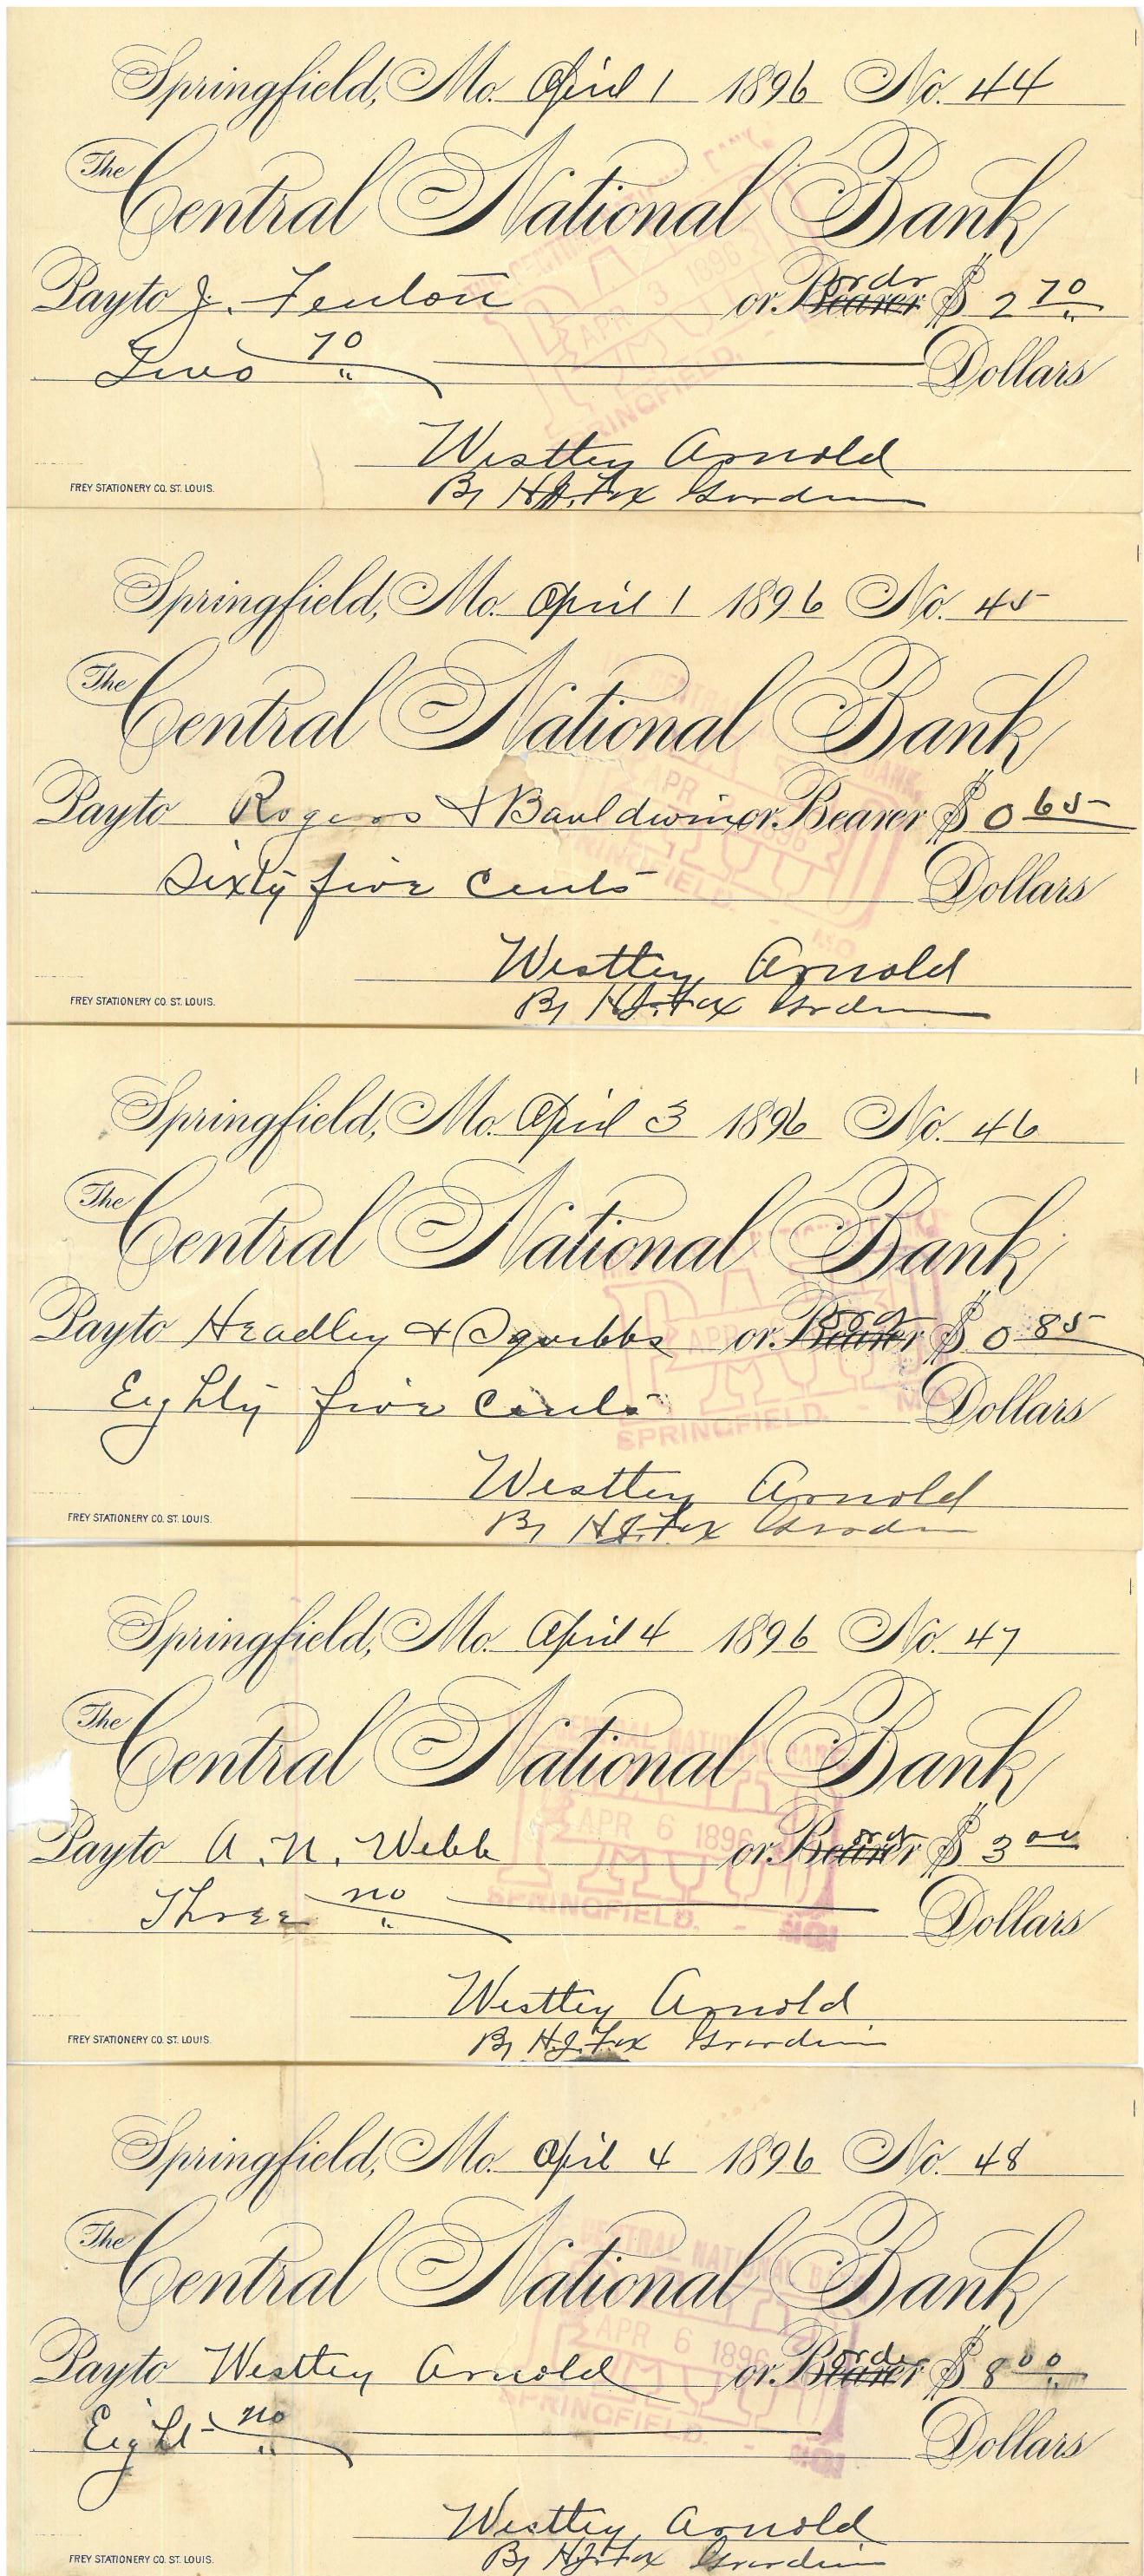 Springfield, Mo. April 1 1896 No. 44
The Central National Bank
Pay to J. Fenton or Bearer order $ 2 70
Two 70 Dollars
Westley Arnold
By H.J. Fox Guardin
FREY STATIONERY CO. ST. LOUIS.
APR 3 1896
SPRINGFIELD.
Springfield, Mo. April 1 1896 No. 45
The Central National Bank
Pay to Rogers & Bauldwin or Bearer $ 0 65
Sixty five Cents Dollars
Westley Arnold
By H.J. Fox Gurdin
FREY STATIONERY CO. ST. LOUIS.
APR
Springfield, Mo. April 3 1896 No. 46
The Central National Bank
Pay to Headley & Squibbs or Bearer $ 0 85
Eighty five Cents Dollars
Westley Arnold
By H.J. Fox Guardin
FREY STATIONERY CO. ST. LOUIS.
PAID
APR
SPRINGFIELD. - MO
Springfield, Mo. April 4 1896 No. 47
The Central National Bank
Pay to A. N. Webb or Bearer $ 3 00
Three no Dollars
Westley Arnold
By H.J. Fox Guardin
FREY STATIONERY CO. ST. LOUIS.
CENTRAL NATIONAL BANK
APR 6 1896
SPRINGFIELD. - MO.
Springfield, Mo. April 4 1896 No. 48
The Central National Bank
Pay to Westley Arnold or Bearer order $ 8 00
Eight no Dollars
Westley Arnold
By H.J. Fox Guardin
FREY STATIONERY CO. ST. LOUIS.
CENTRAL NATIONAL B
APR 6 1896
SPRINGFIELD. - MO.